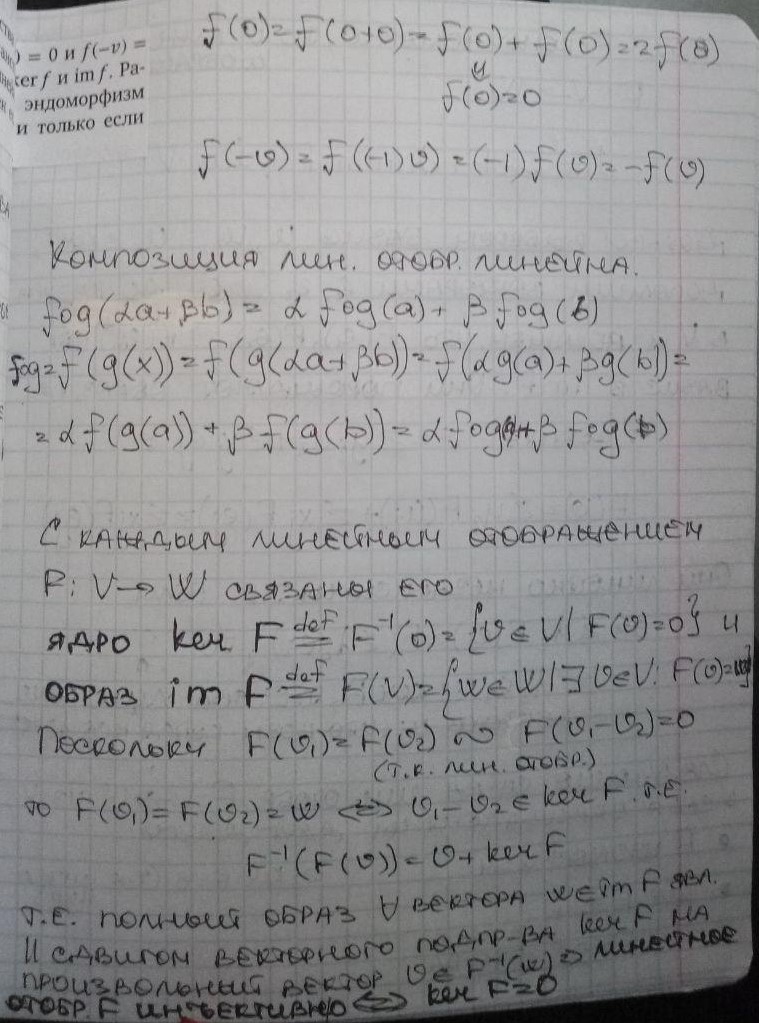 ) = 0 и f(−v) =
ker f и im f. Ра-
эндоморфизм
и только если
f(0) = f(0+0) = f(0) + f(0) = 2f(0)
⇓
f(0) = 0
f(−v) = f((−1)v) = (−1)f(v) = −f(v)
Композиция лин. отобр. линейна.
fog(αa+βb) = α fog(a) + β fog(b)
fog = f(g(x)) = f(g(αa+βb)) = f(αg(a) + βg(b)) =
= α f(g(a)) + β f(g(b)) = α fog(a) + β fog(b)
С каждым линейным отображением
F: V → W связаны его
ядро ker F ≝ F⁻¹(0) = {v ∈ V | F(v) = 0} и
образ im F ≝ F(V) = {w ∈ W | ∃ v ∈ V: F(v) = w}
Поскольку F(v₁) = F(v₂) ~ F(v₁−v₂) = 0
(т.к. лин. отобр.)
то F(v₁) = F(v₂) = w ⇔ v₁−v₂ ∈ ker F. т.е.
F⁻¹(F(v)) = v + ker F
т.е. полный образ ∀ вектора w ∈ im F явл.
|| сдвигом векторного подпр-ва ker F на
произвольный вектор v ∈ F⁻¹(w) ⇒ линейное
отобр. F инъективно ⇔ ker F = 0